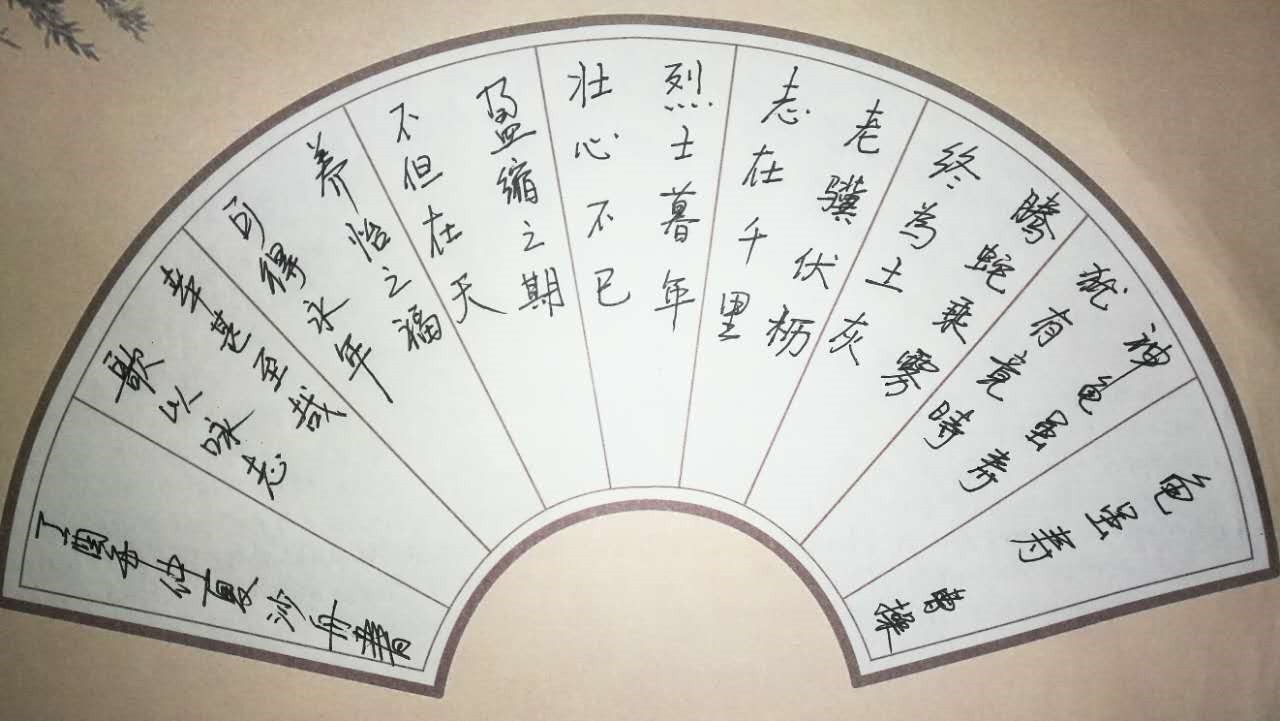 龟虽寿
曹操
神龟虽寿
犹有竟時
腾蛇乘雾
终為土灰
老骥伏枥
志在千里
烈士暮年
壮心不已
盈缩之期
不但在天
养怡之福
可得永年
幸甚至哉
歌以咏志
丁酉年仲夏沙舟書